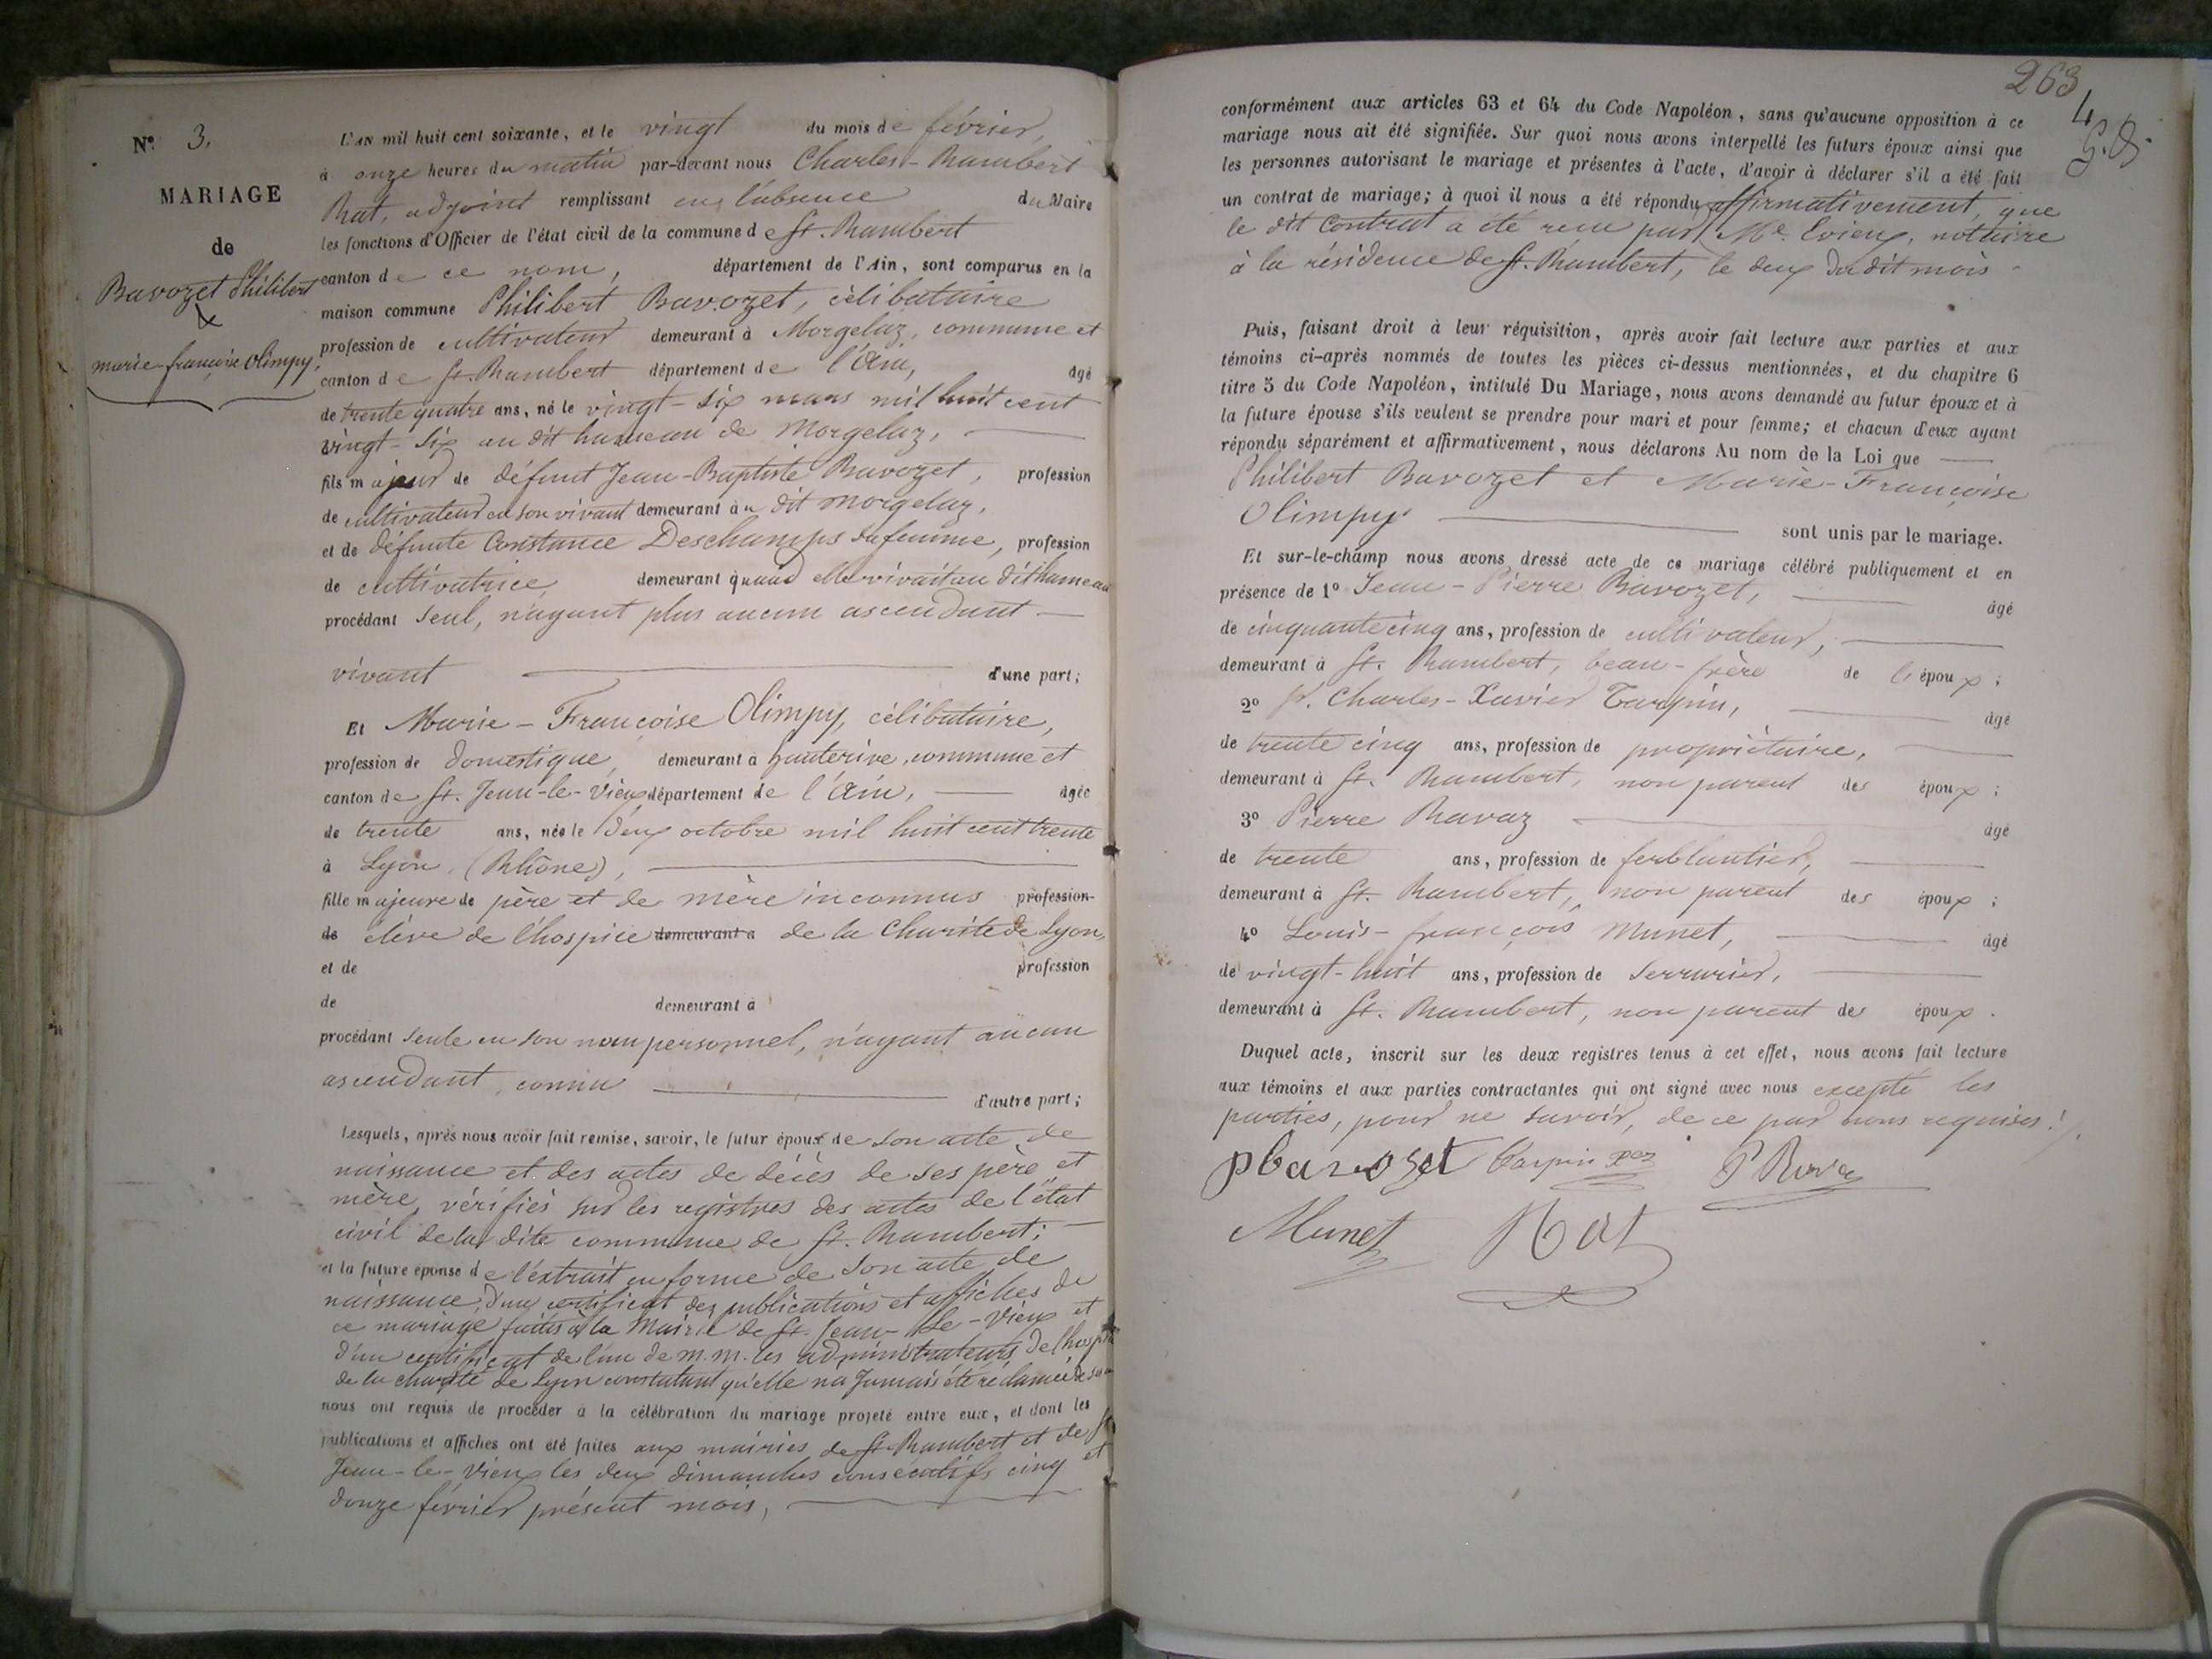 N° 3.
MARIAGE
de
Bavozet Philibert
&
marie françoise Olimpy.
L'AN mil huit cent soixante, et le vingt du mois de février,
à onze heures du matin par-devant nous Charles-Rambert
Rat, adjoint remplissant en l'absence du Maire
les fonctions d'Officier de l'état civil de la commune de St. Rambert
canton de ce nom, département de l'Ain, sont comparus en la
maison commune Philibert Bavozet, célibataire
profession de cultivateur demeurant à Morgelaz, commune et
canton de St. Rambert département de l'Ain, âgé
de trente quatre ans, né le vingt-six mars mil huit cent
vingt-six au dit hameau de Morgelaz,
fils majeur de défunt Jean-Baptiste Bavozet, profession
de cultivateur en son vivant demeurant au dit morgelaz,
et de défunte Constance Deschamps sa femme, profession
de cultivatrice, demeurant quand elle vivait au dit hameau
procédant seul, n'ayant plus aucun ascendant
vivant d'une part;
Et Marie-Françoise Olimpy, célibataire,
profession de domestique, demeurant à hauterive, commune et
canton de St. Jean-le-Vieux département de l'Ain, âgée
de trente ans, née le deux octobre mil huit cent trente
à Lyon (Rhône),
fille majeure de père et de mère inconnus profession
de élève de l'hospice demeurant à de la Charité de Lyon,
et de profession
de demeurant à
procédant seule en son nom personnel, n'ayant aucun
ascendant connu d'autre part;
Lesquels, après nous avoir fait remise, savoir, le futur époux de son acte de
naissance et des actes de décès de ses père et
mère, vérifiés sur les registres des actes de l'état
civil de la dite commune de St. Rambert;
et la future épouse de l'extrait en forme de son acte de
naissance, d'un certificat des publications et affiches de
ce mariage faites à la Mairie de St. Jean-le-Vieux et
d'un certificat de l'un de m.m. les administrateurs de
de la charité de Lyon constatant qu'elle n'a jamais été réclamée
nous ont requis de procéder à la célébration du mariage projeté entre eux, et dont les
publications et affiches ont été faites aux mairies de St. Rambert et de St
Jean-le-Vieux les deux dimanches consécutifs cinq et
douze février présent mois,
263
4
conformément aux articles 63 et 64 du Code Napoléon, sans qu'aucune opposition à ce
mariage nous ait été signifiée. Sur quoi nous avons interpellé les futurs époux ainsi que
les personnes autorisant le mariage et présentes à l'acte, d'avoir à déclarer s'il a été fait
un contrat de mariage; à quoi il nous a été répondu affirmativement, que
le dit contrat a été reçu par Me. Evieux, notaire
à la résidence de St. Rambert, le deux du dit mois.
Puis, faisant droit à leur réquisition, après avoir fait lecture aux parties et aux
témoins ci-après nommés de toutes les pièces ci-dessus mentionnées, et du chapitre 6
titre 5 du Code Napoléon, intitulé Du Mariage, nous avons demandé au futur époux et à
la future épouse s'ils veulent se prendre pour mari et pour femme; et chacun d'eux ayant
répondu séparément et affirmativement, nous déclarons Au nom de la Loi que
Philibert Bavozet et Marie-Françoise
Olimpy sont unis par le mariage.
Et sur-le-champ nous avons dressé acte de ce mariage célébré publiquement et en
présence de 1° Jean-Pierre Bavozet, âgé
de cinquante cinq ans, profession de cultivateur,
demeurant à St. Rambert, beau-frère de l'époux;
2° Charles-Xavier Tarpin, âgé
de trente cinq ans, profession de propriétaire,
demeurant à St. Rambert, non parent des époux;
3° Pierre Ravaz âgé
de trente ans, profession de ferblantier,
demeurant à St. Rambert, non parent des époux;
4° Louis-françois Munet, âgé
de vingt-huit ans, profession de serrurier,
demeurant à St. Rambert, non parent des époux.
Duquel acte, inscrit sur les deux registres tenus à cet effet, nous avons fait lecture
aux témoins et aux parties contractantes qui ont signé avec nous excepté les
parties, pour ne savoir, de ce par nous requises.
pbavozet Tarpin xer P Ravaz
Munet Rat